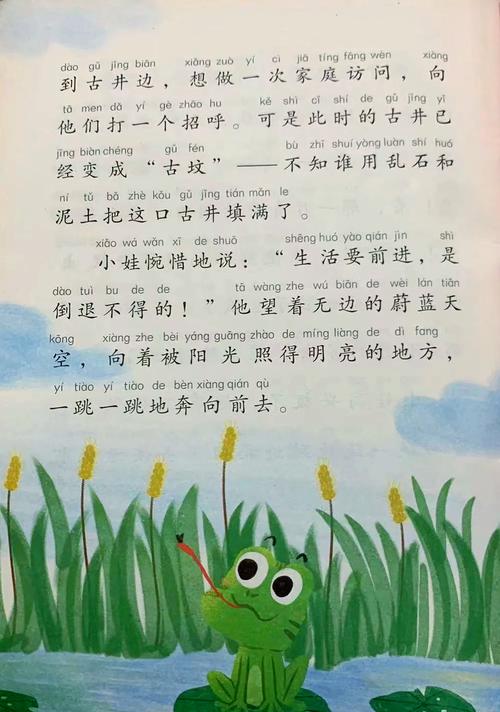 dào gǔ jǐng biān xiǎng zuò yí cì jiā tíng fǎng wèn xiàng
到古井边，想做一次家庭访问，向
tā men dǎ yí gè zhāo hu kě shì cǐ shí de gǔ jǐng yǐ
他们打一个招呼。可是此时的古井已
jīng biàn chéng gǔ fén bù zhī shuí yòng luàn shí huó
经变成“古坟”——不知谁用乱石和
ní tǔ bǎ zhè kǒu gǔ jǐng tián mǎn le
泥土把这口古井填满了。
xiǎo wá wǎn xī de shuō shēng huó yào qián jìn shì
小娃惋惜地说：“生活要前进，是
dào tuì bu de de tā wàng zhe wú biān de wèi lán tiān
倒退不得的！”他望着无边的蔚蓝天
kōng xiàng zhe bèi yáng guāng zhào de míng liàng de dì fang
空，向着被阳光照得明亮的地方，
yí tiào yí tiào de bèn xiàng qián qù
一跳一跳地奔向前去。